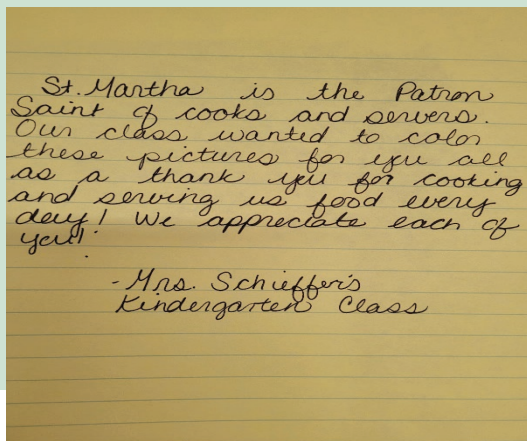 St. Martha is the Patron
Saint of cooks and servers.
Our class wanted to color
these pictures for you all
as a thank you for cooking
and serving us food every
day! We appreciate each of
you!
- Mrs. Schieffer's
Kindergarten Class